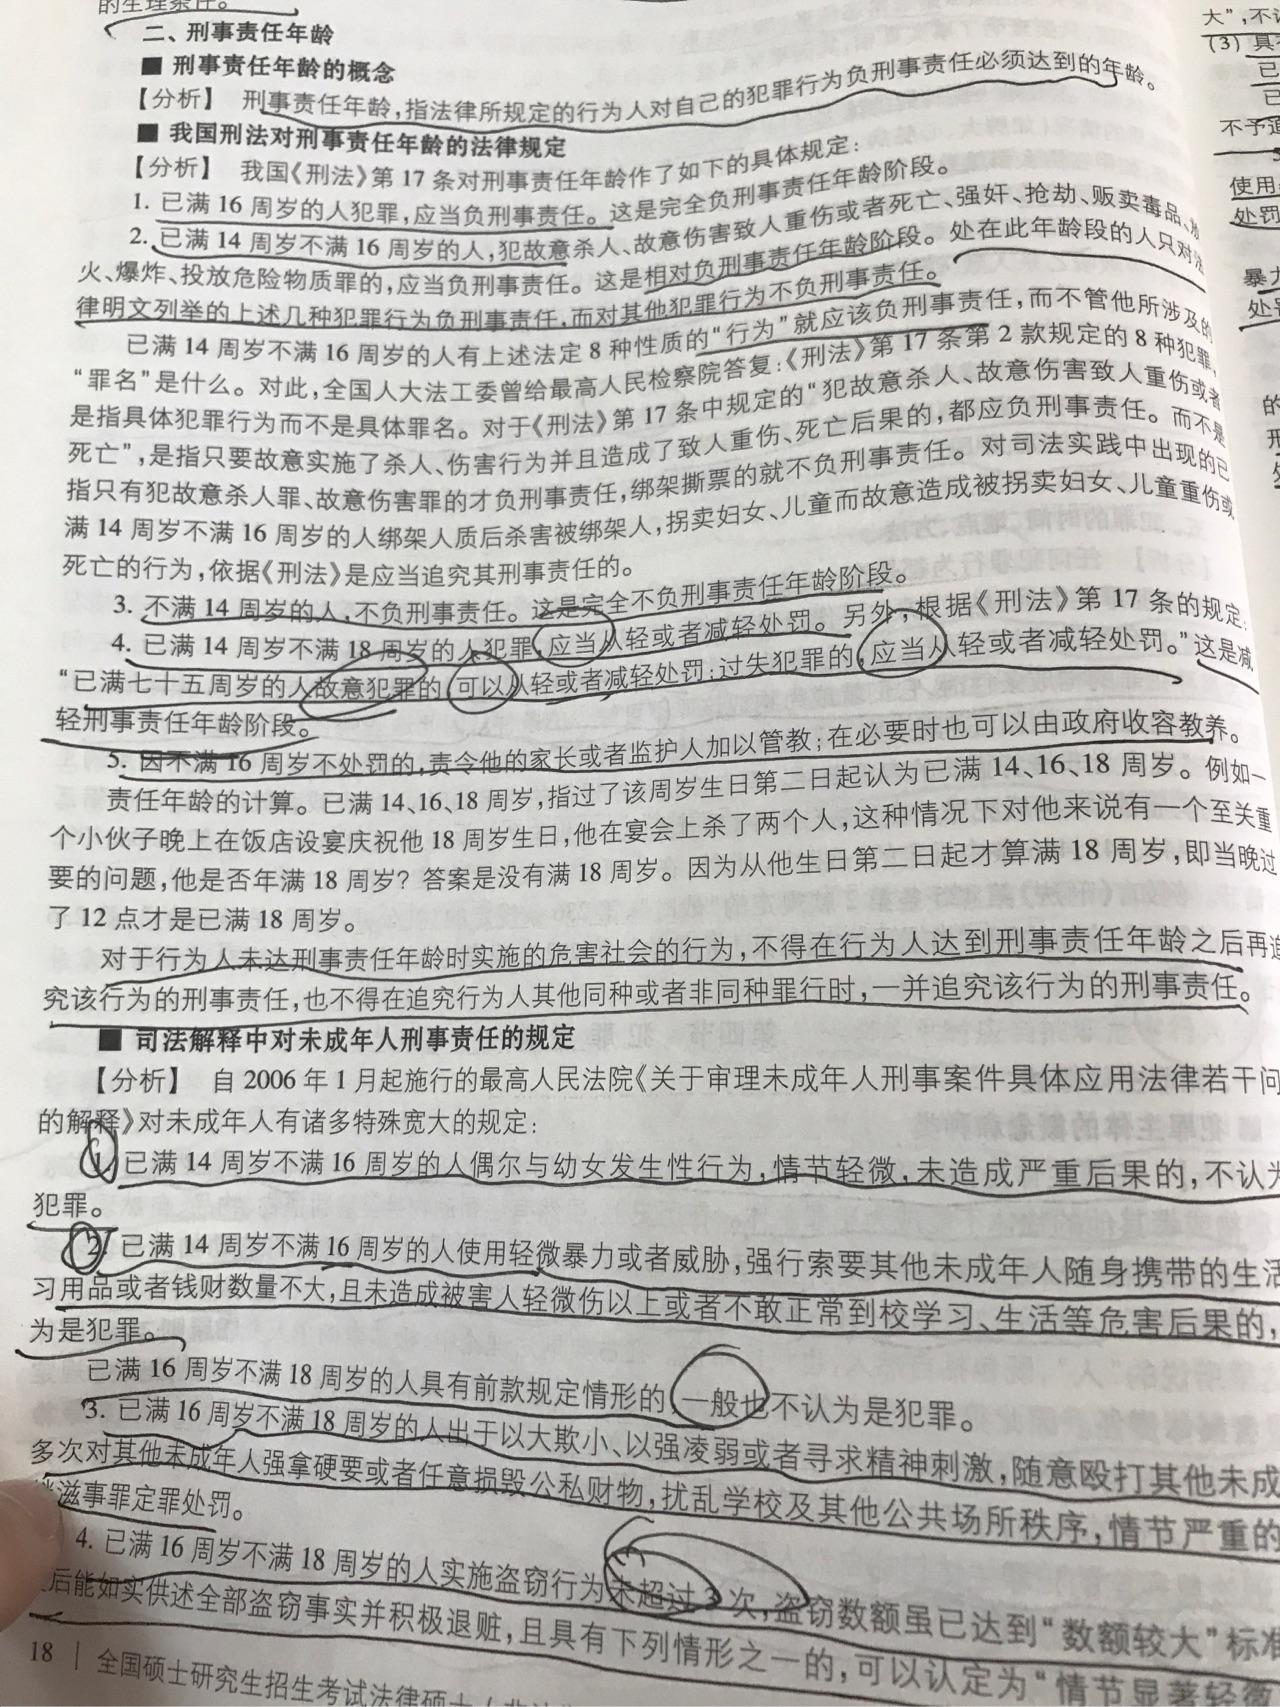 的生理条件。
二、刑事责任年龄
■ 刑事责任年龄的概念
【分析】 刑事责任年龄,指法律所规定的行为人对自己的犯罪行为负刑事责任必须达到的年龄。
■ 我国刑法对刑事责任年龄的法律规定
【分析】 我国《刑法》第17条对刑事责任年龄作了如下的具体规定:
1. 已满16周岁的人犯罪,应当负刑事责任。这是完全负刑事责任年龄阶段。
2. 已满14周岁不满16周岁的人,犯故意杀人、故意伤害致人重伤或者死亡、强奸、抢劫、贩卖毒品、放
火、爆炸、投放危险物质罪的,应当负刑事责任。这是相对负刑事责任年龄阶段。处在此年龄段的人只对法
律明文列举的上述几种犯罪行为负刑事责任,而对其他犯罪行为不负刑事责任。
已满14周岁不满16周岁的人有上述法定8种性质的“行为”就应该负刑事责任,而不管他所涉及的
“罪名”是什么。对此,全国人大法工委曾给最高人民检察院答复:《刑法》第17条第2款规定的8种犯罪,
是指具体犯罪行为而不是具体罪名。对于《刑法》第17条中规定的“犯故意杀人、故意伤害致人重伤或者
死亡”,是指只要故意实施了杀人、伤害行为并且造成了致人重伤、死亡后果的,都应负刑事责任。而不是
指只有犯故意杀人罪、故意伤害罪的才负刑事责任,绑架撕票的就不负刑事责任。对司法实践中出现的已
满14周岁不满16周岁的人绑架人质后杀害被绑架人,拐卖妇女、儿童而故意造成被拐卖妇女、儿童重伤或
死亡的行为,依据《刑法》是应当追究其刑事责任的。
3. 不满14周岁的人,不负刑事责任。这是完全不负刑事责任年龄阶段。
4. 已满14周岁不满18周岁的人犯罪,应当从轻或者减轻处罚。另外,根据《刑法》第17条的规定:
“已满七十五周岁的人故意犯罪的,可以从轻或者减轻处罚;过失犯罪的,应当从轻或者减轻处罚。”这是减
轻刑事责任年龄阶段。
5. 因不满16周岁不处罚的,责令他的家长或者监护人加以管教;在必要时也可以由政府收容教养。
责任年龄的计算。已满14、16、18周岁,指过了该周岁生日第二日起认为已满14、16、18周岁。例如一
个小伙子晚上在饭店设宴庆祝他18周岁生日,他在宴会上杀了两个人,这种情况下对他来说有一个至关重
要的问题,他是否年满18周岁?答案是没有满18周岁。因为从他生日第二日起才算满18周岁,即当晚过
了12点才是已满18周岁。
对于行为人未达刑事责任年龄时实施的危害社会的行为,不得在行为人达到刑事责任年龄之后再追
究该行为的刑事责任,也不得在追究行为人其他同种或者非同种罪行时,一并追究该行为的刑事责任。
■ 司法解释中对未成年人刑事责任的规定
【分析】 自2006年1月起施行的最高人民法院《关于审理未成年人刑事案件具体应用法律若干问
的解释》对未成年人有诸多特殊宽大的规定:
1. 已满14周岁不满16周岁的人偶尔与幼女发生性行为,情节轻微,未造成严重后果的,不认为
犯罪。
2. 已满14周岁不满16周岁的人使用轻微暴力或者威胁,强行索要其他未成年人随身携带的生活
习用品或者钱财数量不大,且未造成被害人轻微伤以上或者不敢正常到校学习、生活等危害后果的,
为是犯罪。
已满16周岁不满18周岁的人具有前款规定情形的,一般也不认为是犯罪。
3. 已满16周岁不满18周岁的人出于以大欺小、以强凌弱或者寻求精神刺激,随意殴打其他未成
多次对其他未成年人强拿硬要或者任意损毁公私财物,扰乱学校及其他公共场所秩序,情节严重的
滋事罪定罪处罚。
4. 已满16周岁不满18周岁的人实施盗窃行为未超过3次,盗窃数额虽已达到“数额较大”标准
后能如实供述全部盗窃事实并积极退赃,且具有下列情形之一的,可以认定为“情节显著轻微
18 | 全国硕士研究生招生考试法律硕士
大”,不
(3) 具
已
已
不予追
使用
处罚
暴力
处
的